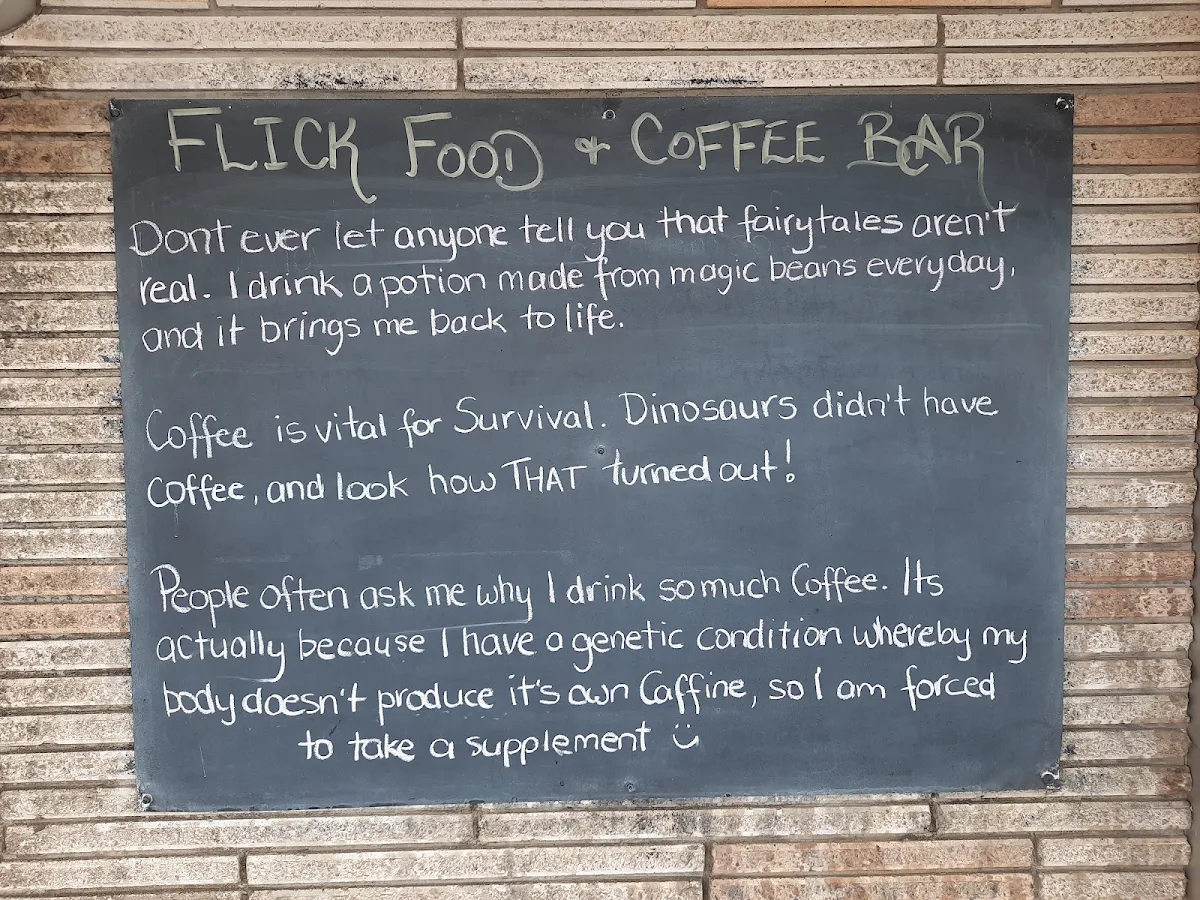 FLICK FOOD & COFFEE BAR
Dont ever let anyone tell you that fairytales aren't
real. I drink a potion made from magic beans everyday,
and it brings me back to life.
Coffee is vital for Survival. Dinosaurs didn't have
coffee, and look how THAT turned out!
People often ask me why I drink so much Coffee. Its
actually because I have a genetic condition whereby my
body doesn't produce it's own Caffine, so I am forced
to take a supplement ü